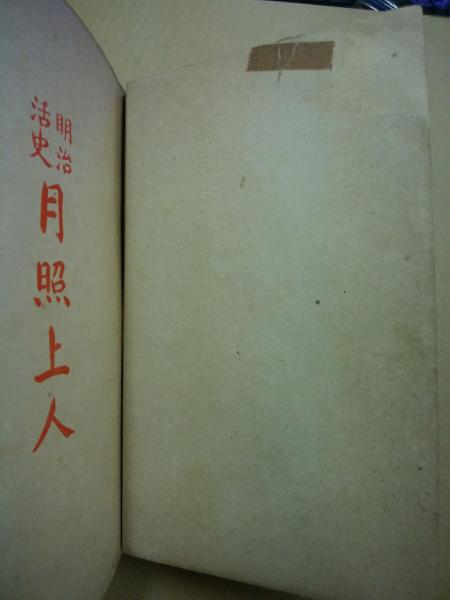 明治
活史
月照上人